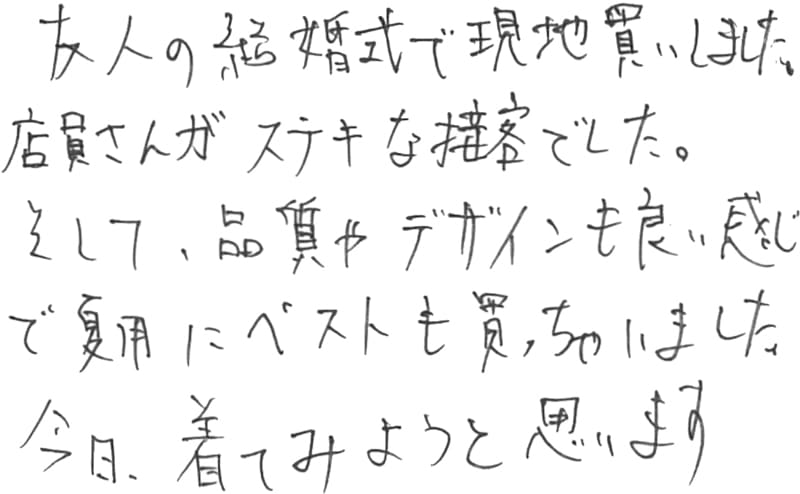 友人の結婚式で現地買いしました。
店員さんがステキな接客でした。
そして、品質やデザインも良い感じ
で夏用にベストも買っちゃいました。
今日、着てみようと思います